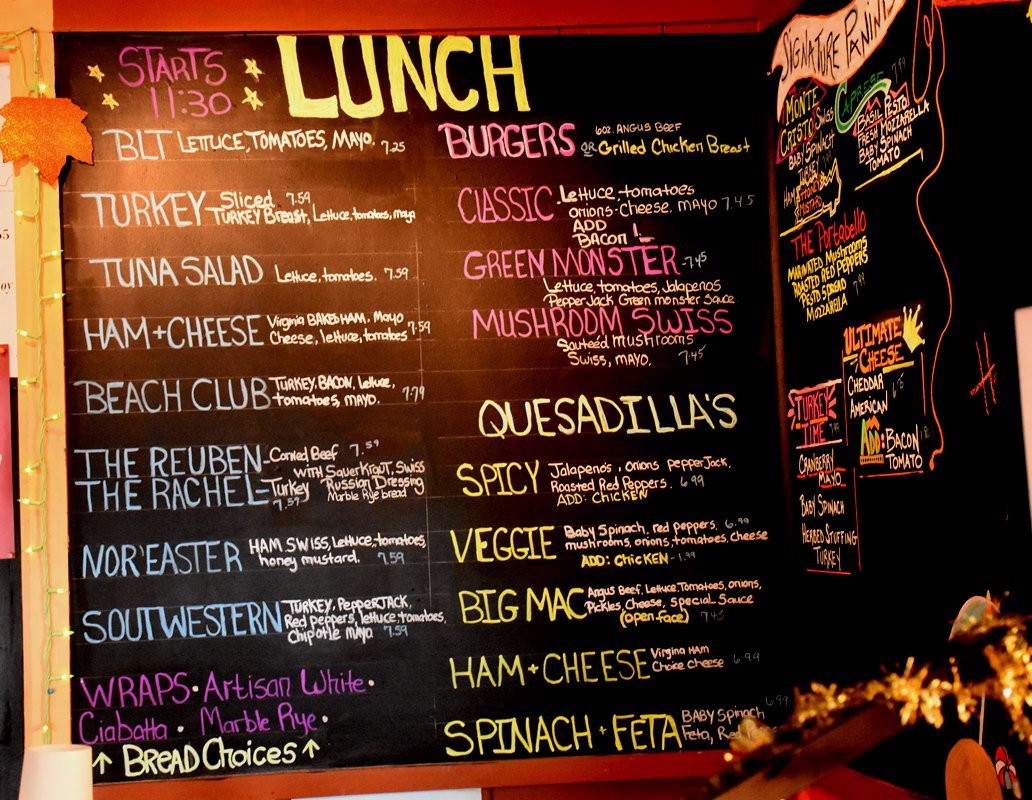 STARTS
11:30
LUNCH
BLT LETTUCE, TOMATOES, MAYO. 7.25
TURKEY Sliced 7.59
TURKEY Breast, Lettuce, tomatoes, mayo
TUNA SALAD Lettuce, tomatoes. 7.59
HAM+CHEESE Virginia BAKED HAM, Mayo
Cheese, lettuce, tomatoes 7.59
BEACH CLUB TURKEY, BACON, Lettuce,
tomatoes, MAYO. 7.79
THE REUBEN-Corned Beef 7.59
WITH SauerKraut, Swiss
THE RACHEL-Turkey Russian Dressing
7.59 Marble Rye bread
NOR'EASTER HAM, SWISS, Lettuce, tomatoes,
honey mustard. 7.59
SOUTWESTERN TURKEY, PepperJACK,
Red peppers, lettuce, tomatoes,
Chipotle MAYO. 7.59
WRAPS • Artisan White •
Ciabatta • Marble Rye •
↑ BREAD CHOICES ↑
BURGERS 6oz. ANGUS BEEF
OR Grilled Chicken Breast
CLASSIC Lettuce tomatoes
onions cheese, MAYO 7.45
ADD
BACON 1.-
GREEN MONSTER -7.45
Lettuce, tomatoes, Jalapenos
PepperJack Green monster Sauce
MUSHROOM SWISS
Sauteed mushrooms
Swiss, mayo. 7.45
QUESADILLA'S
SPICY Jalapenos, onions pepperJack,
Roasted Red Peppers. 6.99
ADD: CHICKEN
VEGGIE Baby Spinach, red peppers, 6.99
mushrooms, onions, tomatoes, cheese
ADD: CHICKEN - 1.99
BIG MAC Angus Beef, Lettuce, Tomatoes, onions,
Pickles, Cheese, Special Sauce
(open face) 7.45
HAM+CHEESE Virginia HAM
Choice cheese 6.99
SPINACH + FETA BABY Spinach 6.99
Feta, Red
SIGNATURE PANINIS
MONTE
CRISTO Swiss
BABY SPINACH
TURKEY
HAM
HONEY
MUSTARD
CAPRESE 7.99
BASIL PESTO
FRESH MOZZARELLA
BABY SPINACH
TOMATO
THE Portabello
MARINATED MUSHROOMS
ROASTED RED PEPPERS
PESTO SPREAD 7.99
MOZZARELLA
ULTIMATE
CHEESE
CHEDDAR
AMERICAN
ADD: BACON
TOMATO
TURKEY
TIME
CRANBERRY
MAYO
BABY SPINACH
HERBED STUFFING
TURKEY